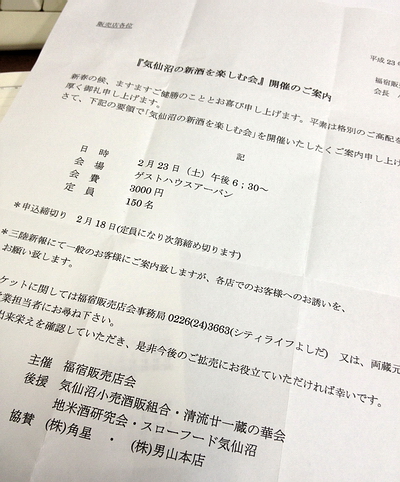 販売店各位
平成 23
福宿販売
会長
『気仙沼の新酒を楽しむ会』開催のご案内
新春の候、ますますご健勝のこととお喜び申し上げます。平素は格別のご高配を
厚く御礼申し上げます。
さて、下記の要領で「気仙沼の新酒を楽しむ会」を開催いたしたくご案内申し上げ
記
日 時 2月23日(土)午後6;30~
会 場 ゲストハウスアーバン
会 費 3000円
定 員 150名
*申込締切り 2月18日(定員になり次第締め切ります)
*三陸新報にて一般のお客様にご案内致しますが、各店でのお客様へのお誘いを、
お願い致します。
ケットに関しては福宿販売店会事務局 0226(24)3663(シティライフよしだ) 又は、両蔵元
業担当者にお尋ね下さい。
出来栄えを確認していただき、是非今後のご拡売にお役立ていただければ幸いです。
主催 福宿販売店会
後援 気仙沼小売酒販組合・清流廿一蔵の華会
地米酒研究会・スローフード気仙沼
協賛 (株)角星 ・ (株)男山本店